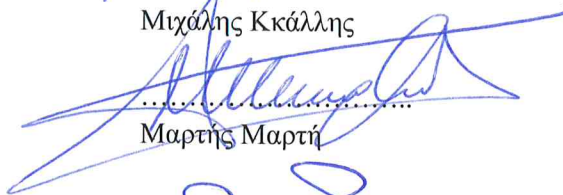 Μιχάλης Κκάλλης
................................
Μαρτής Μαρτή